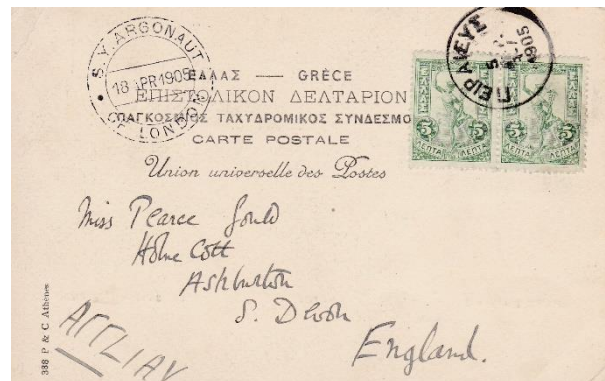 S.Y. ARGONAUT
18 APR 1905
OF LONDON
ΠΕΙΡΑΙΕΥΣ
5
1905
ΕΛΛΑΣ — GRÈCE
ΕΠΙΣΤΟΛΙΚΟΝ ΔΕΛΤΑΡΙΟΝ
ΠΑΓΚΟΣΜΙΟΣ ΤΑΧΥΔΡΟΜΙΚΟΣ ΣΥΝΔΕΣΜΟ
CARTE POSTALE
Union universelle des Postes
ΕΛΛΑΣ
5 5
ΛΕΠΤΑ ΛΕΠΤΑ
ΕΛΛΑΣ
5 5
ΛΕΠΤΑ ΛΕΠΤΑ
Miss Pearce Gould
Holne Cott
Ashburton
S. Devon
England.
ΑΓΓΛΙΑΝ
388 P & C Athenes